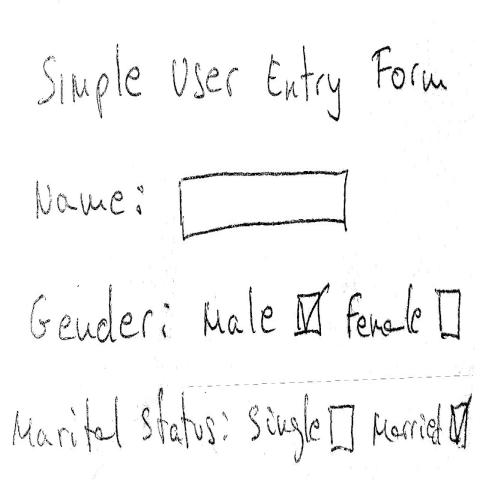 Simple User Entry Form
Name:
Gender: Male ☑ Female ☐
Marital Status: Single ☐ Married ☑